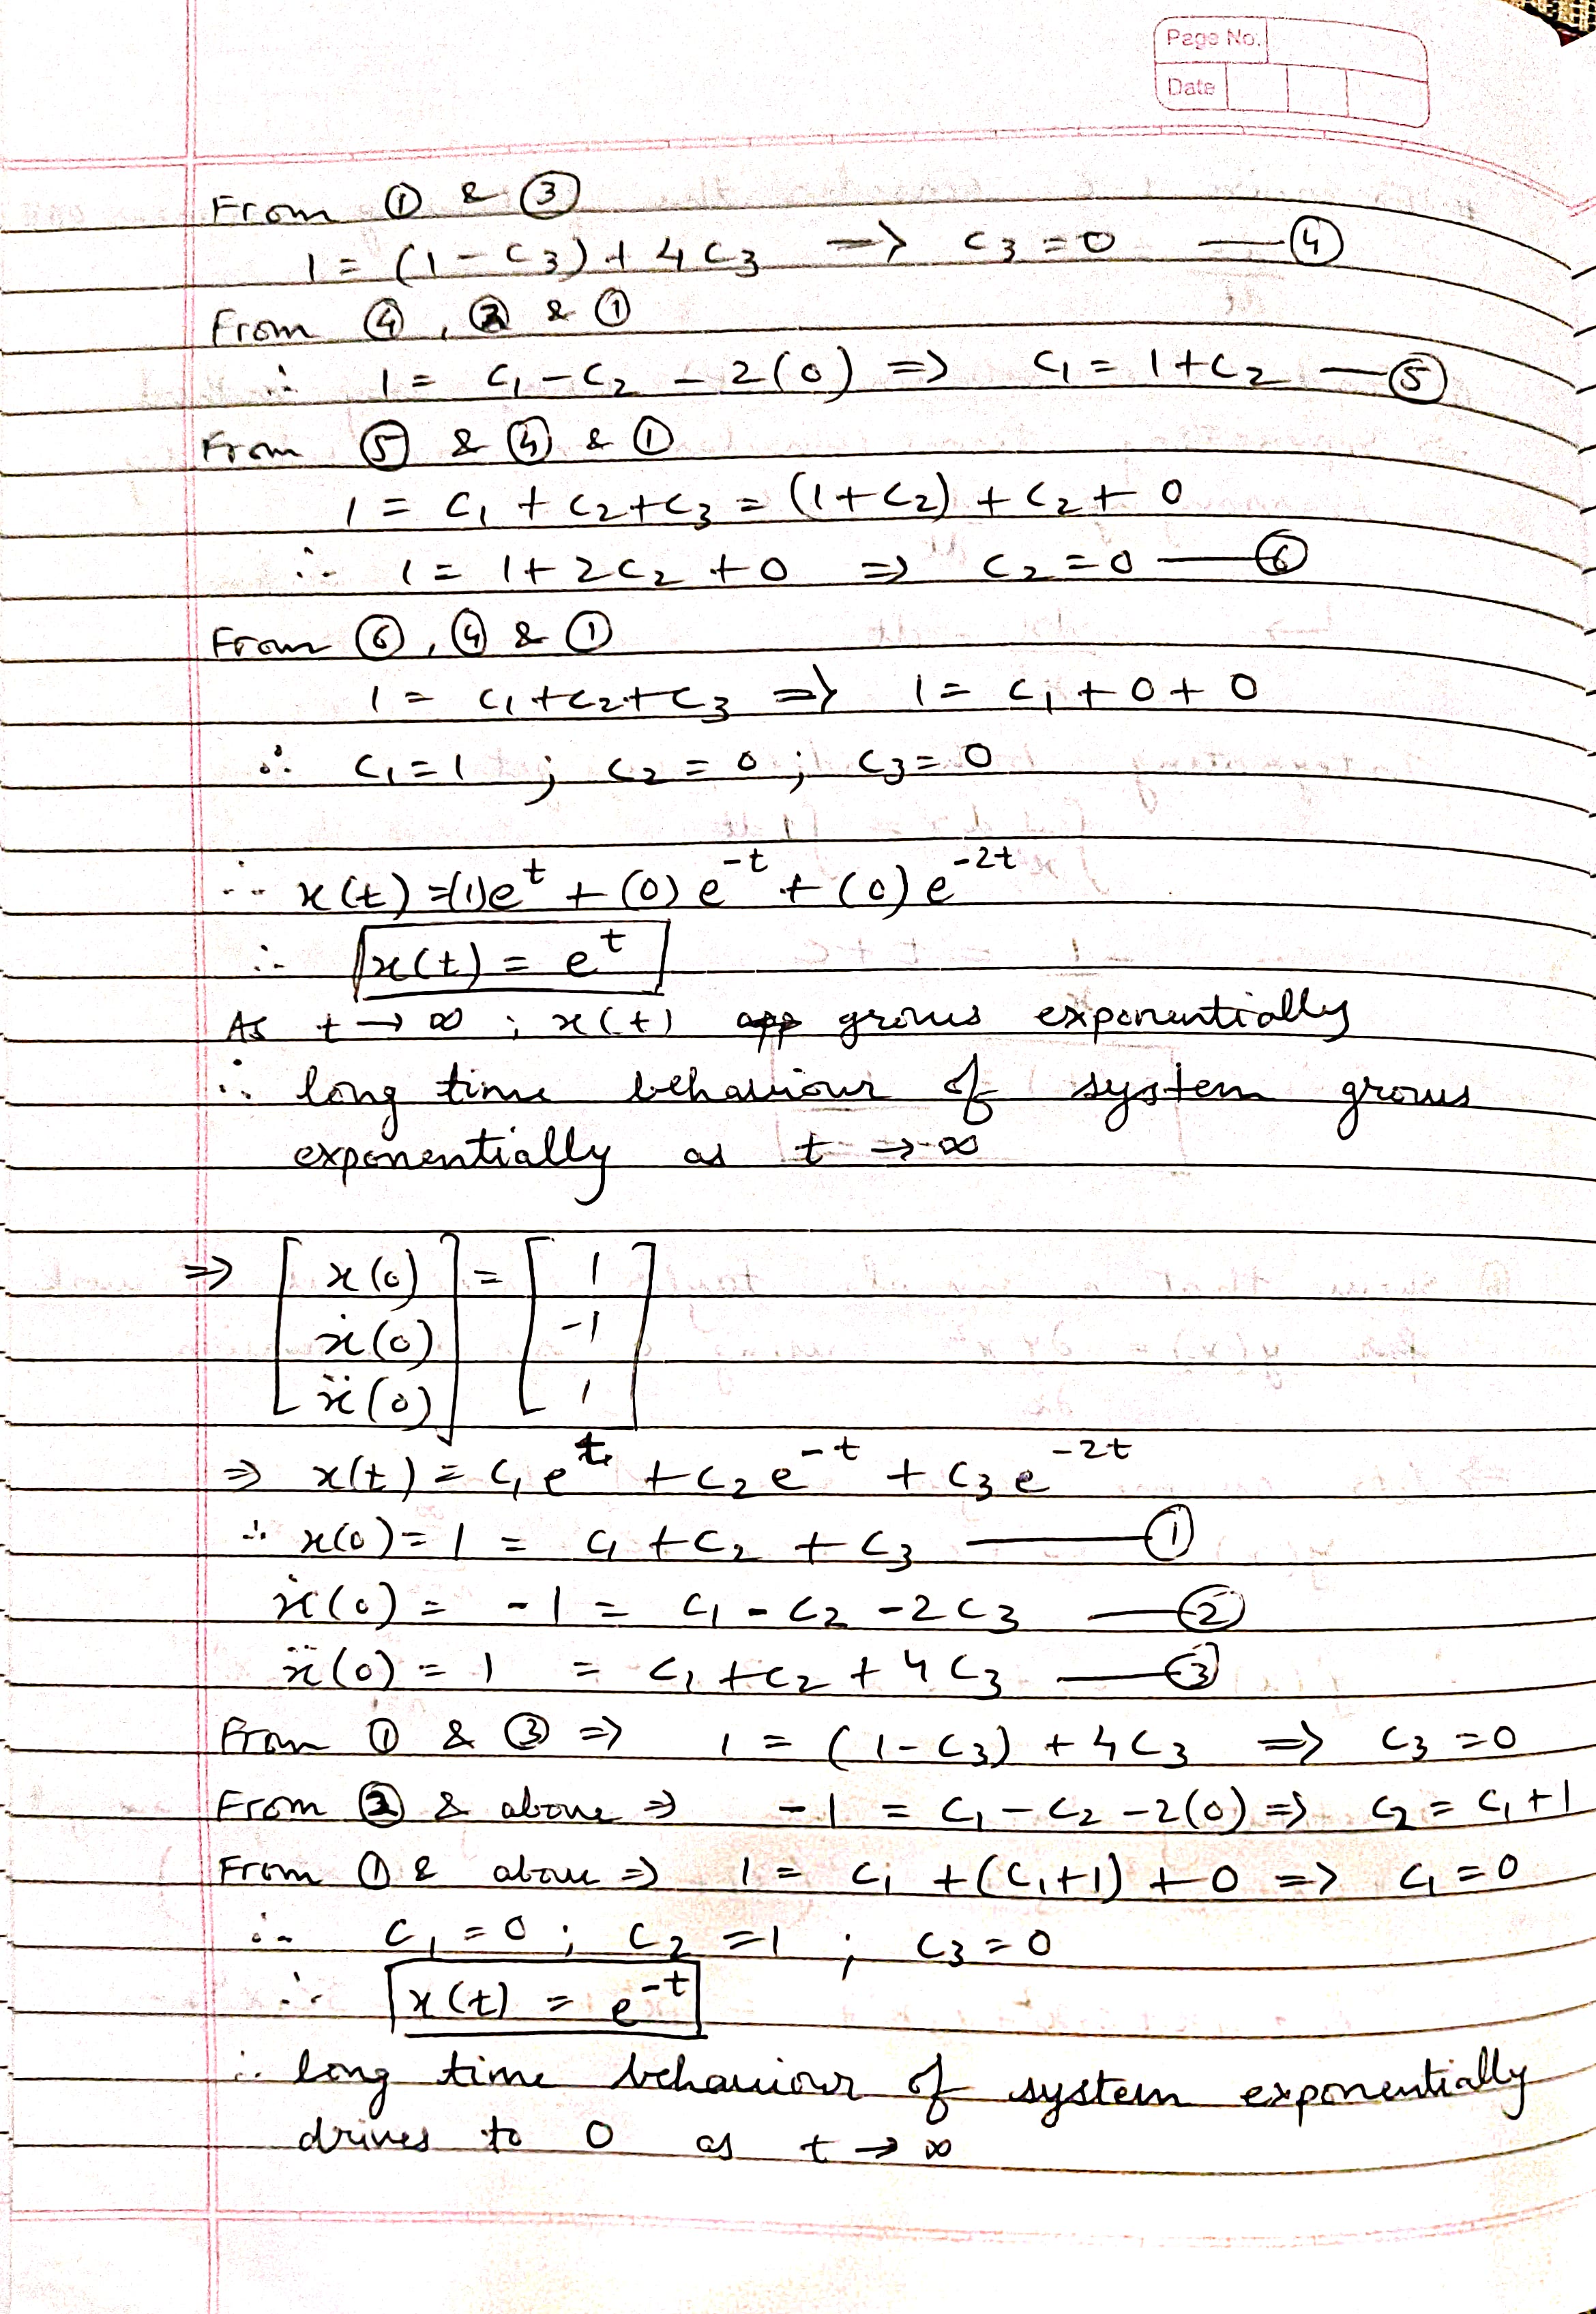 Page No.
Date
From ① & ③
1 = (1 - c₃) + 4c₃ => c₃ = 0 — ④
From ④, ② & ①
∴ 1 = c₁ - c₂ - 2(0) => c₁ = 1 + c₂ — ⑤
From ⑤ & ④ & ①
1 = c₁ + c₂ + c₃ = (1 + c₂) + c₂ + 0
∴ 1 = 1 + 2c₂ + 0 => c₂ = 0 — ⑥
From ⑥, ④ & ①
1 = c₁ + c₂ + c₃ => 1 = c₁ + 0 + 0
∴ c₁ = 1 ; c₂ = 0 ; c₃ = 0
∴ x(t) = (1)e^t + (0)e^-t + (0)e^-2t
∴ x(t) = e^t
As t → ∞ ; x(t) grows exponentially
∴ long time behaviour of system grows
exponentially as t → ∞
=> [x(0)] = [1]
[ẋ(0)] [-1]
[ẍ(0)] [1]
=> x(t) = c₁e^t + c₂e^-t + c₃e^-2t
∴ x(0) = 1 = c₁ + c₂ + c₃ — ①
ẋ(0) = -1 = c₁ - c₂ - 2c₃ — ②
ẍ(0) = 1 = c₁ + c₂ + 4c₃ — ③
From ① & ③ => 1 = (1 - c₃) + 4c₃ => c₃ = 0
From ② & above => -1 = c₁ - c₂ - 2(0) => c₂ = c₁ + 1
From ① & above => 1 = c₁ + (c₁ + 1) + 0 => c₁ = 0
∴ c₁ = 0 ; c₂ = 1 ; c₃ = 0
∴ x(t) = e^-t
∴ long time behaviour of system exponentially
drives to 0 as t → ∞